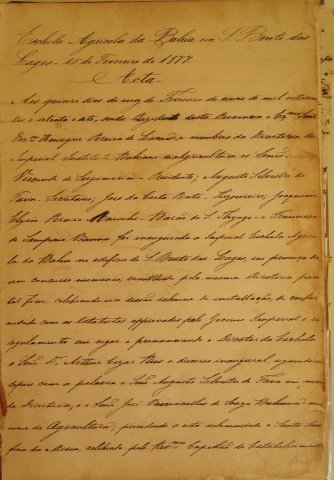 Eschola Agricola da Bahia em S. Bento das
Lages - 15 de Fevereiro de 1877
Acta
Aos quinze dias do mez de Fevereiro do anno de mil oitocen
tos e setenta e sete, sendo Presidente desta Provincia o Exmo Senr
Dez.or Henrique Pereira de Lucena e membros da Directoria do
Imperial Instituto Bahiano de Agricultura os Senres
Visconde de Sergimerim - Presidente; Augusto Silvestre de
Faria - Secretario; José da Costa Pinto - Thezoureiro; Joaquim
Elysio Pereira Marinho - Barão de S. Thyago - e Francisco
de Sampaio Vianna foi inaugurada a Imperial Eschola Agrico
la da Bahia no edificio de S. Bento das Lages, em presença de
um concurso numeroso, convidado pela mesma directoria para
tal fim, celebrando-se a sessão solemne de installação, de confor
midade com os Estatutos approvados pelo Governo Imperial e
regulamento em vigor e pronunciando o Director da Eschola
o Senr Dr. Arthur Cezar Rios o discurso inaugural, seguindo-se
depois com a palavra o Senr Augusto Silvestre de Faria em nome
da Directoria, e o Senr José Vasconcellos de Souza Bahiana em
nome da Agricultura, precedendo a este solemnidade o Santo Sacri
ficio da Missa, celebrado pelo Revmo Capellão do Estabelecimento